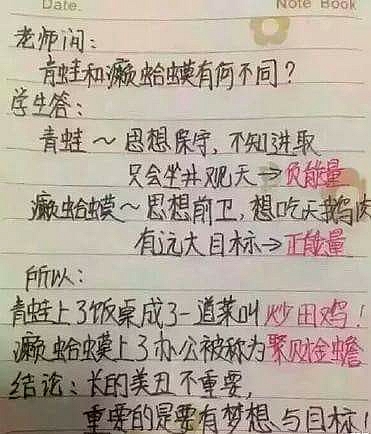 Date.
Note Book
老师问：
青蛙和癞蛤蟆有何不同？
学生答：
青蛙～思想保守，不知进取
只会坐井观天→负能量
癞蛤蟆～思想前卫，想吃天鹅肉
有远大目标→正能量
所以：
青蛙上了饭桌成了一道菜叫炒田鸡！
癞蛤蟆上了办公被称为聚财金蟾
结论：长的美丑不重要，
重要的是要有梦想与目标！